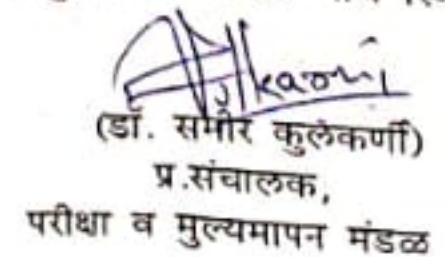 (डॉ. समीर कुलकर्णी)
प्र.संचालक,
परीक्षा व मुल्यमापन मंडळ